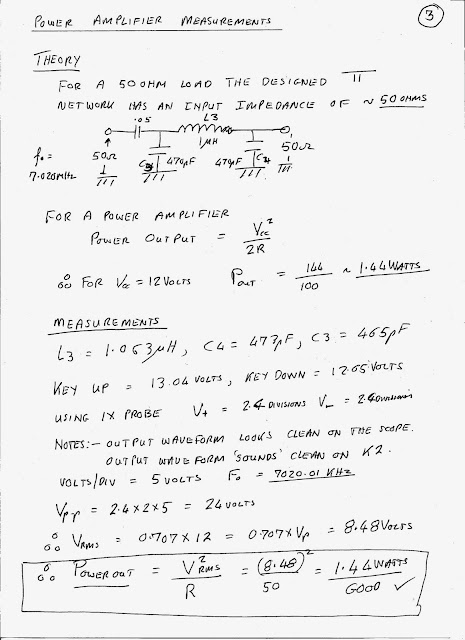 POWER AMPLIFIER MEASUREMENTS
3
THEORY
FOR A 50 OHM LOAD THE DESIGNED Π
NETWORK HAS AN INPUT IMPEDANCE OF ~ 50 OHMS
.05 L3
1μH
f₀ = 50Ω C3 470pF 470pF C4 50Ω
7.020MHz
FOR A POWER AMPLIFIER
POWER OUTPUT = Vcc² / 2R
∴ FOR Vcc = 12 VOLTS Pout = 144 / 100 ~ 1.44 WATTS
MEASUREMENTS
L3 = 1.063μH, C4 = 477pF, C3 = 465pF
KEY UP = 13.04 VOLTS, KEY DOWN = 12.05 VOLTS
USING 1X PROBE V+ = 2.4 DIVISIONS V- = 2.4 DIVISIONS
NOTES:- OUTPUT WAVEFORM LOOKS CLEAN ON THE SCOPE.
OUTPUT WAVE FORM 'SOUNDS' CLEAN ON K2.
VOLTS/DIV = 5 VOLTS F₀ = 7020.01 KHz
Vpp = 2.4 x 2 x 5 = 24 VOLTS
∴ VRMS = 0.707 x 12 = 0.707 x Vp = 8.48 VOLTS
∴ POWER OUT = V²RMS / R = (8.48)² / 50 = 1.44 WATTS
GOOD ✓